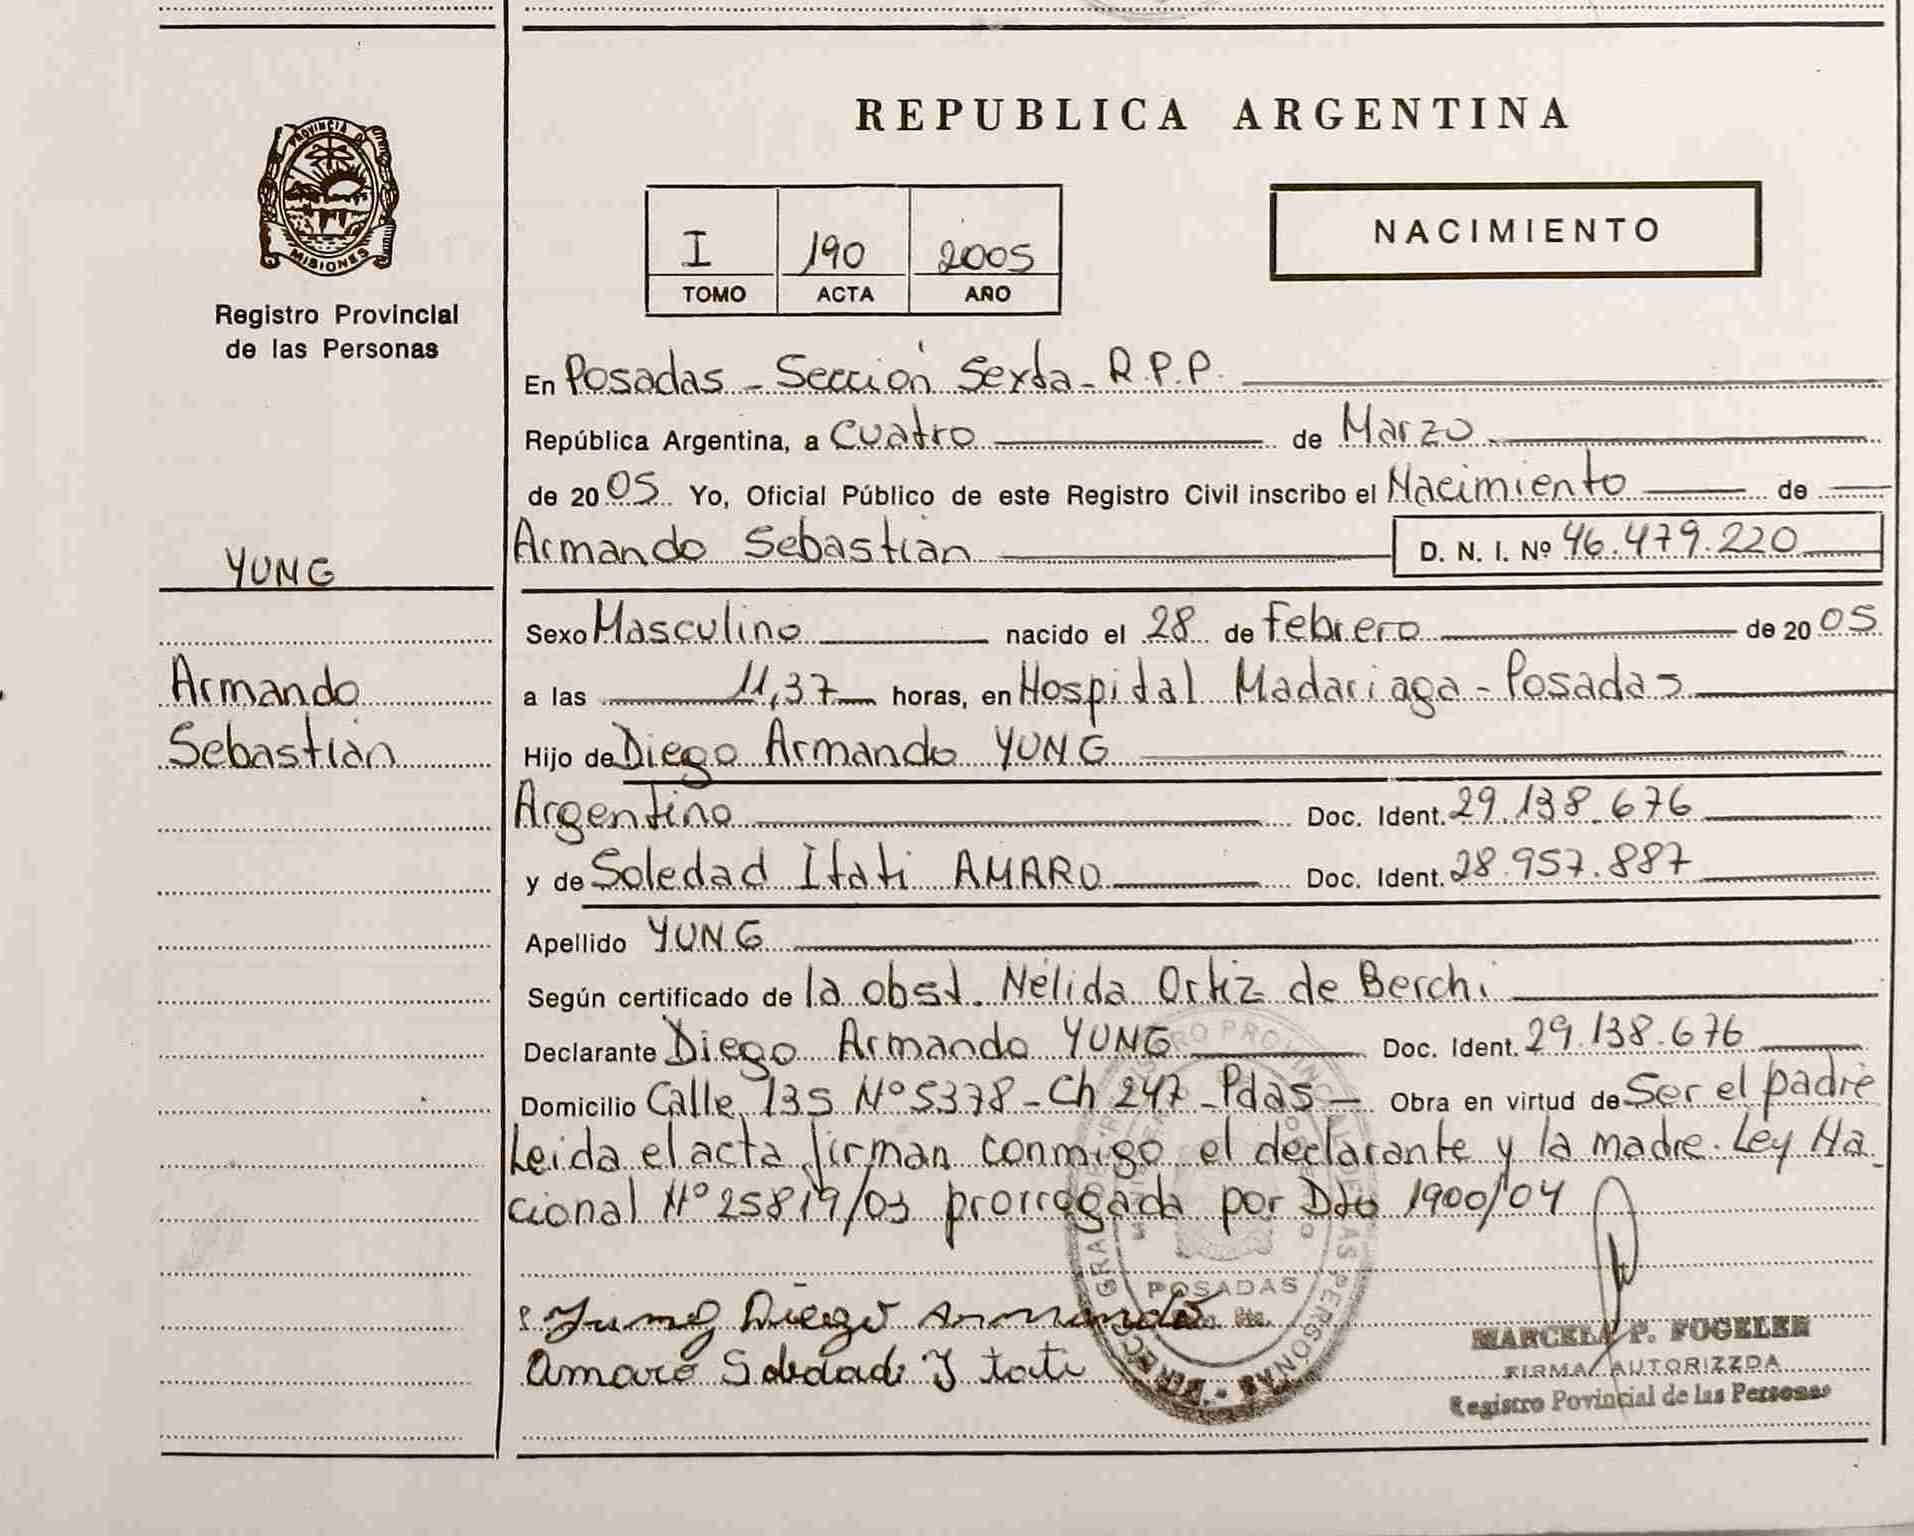 PROVINCIA DE
MISIONES
Registro Provincial
de las Personas
YUNG
Armando
Sebastián
REPUBLICA ARGENTINA
I 190 2005
TOMO ACTA AÑO
NACIMIENTO
En Posadas - Sección Sexta - R.P.P.
República Argentina, a Cuatro de Marzo
de 2005 Yo, Oficial Público de este Registro Civil inscribo el Nacimiento de
Armando Sebastián D. N. I. Nº 46.479.220
Sexo Masculino nacido el 28 de Febrero de 2005
a las 11,37 horas, en Hospital Madariaga - Posadas
Hijo de Diego Armando YUNG
Argentino Doc. Ident. 29.138.676
y de Soledad Itati AMARO Doc. Ident. 28.957.887
Apellido YUNG
Según certificado de la obst. Nélida Ortiz de Berchi
Declarante Diego Armando YUNG Doc. Ident. 29.138.676
Domicilio Calle 135 Nº 5378 - Ch 247 - Pdas - Obra en virtud de Ser el padre
Leida el acta firman conmigo el declarante y la madre. Ley Na-
cional Nº 25819/03 prorrogada por Dto 1900/04
Yung Diego Armando
Amaro Soledad Itati
POSADAS
MARCELA P. FOGELER
FIRMA AUTORIZZDA
Registro Povincial de las Personas